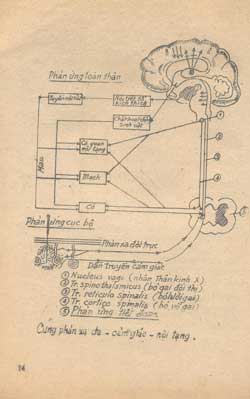 Phản ứng toàn thân
Tuyến nội tiết
Nội tiết tố
kích thích
Chất hoạt động
sinh vật
Cơ quan
nội tạng
Máu
Mạch
Cơ
Phản ứng cục bộ
Phản xạ đội trục
Dẫn truyền cảm giác
① Nucleus vagi (nhân Thần kinh X)
② Tr. spinothalamicus (bó gai đồi thị)
③ Tr. reticulo spinalis (bó lưới gai)
④ Tr. cortico spinalis (bó vỏ gai)
⑤ Phản ứng tiết đoạn
Cung phản xạ da - cảm giác - nội tạng.
14